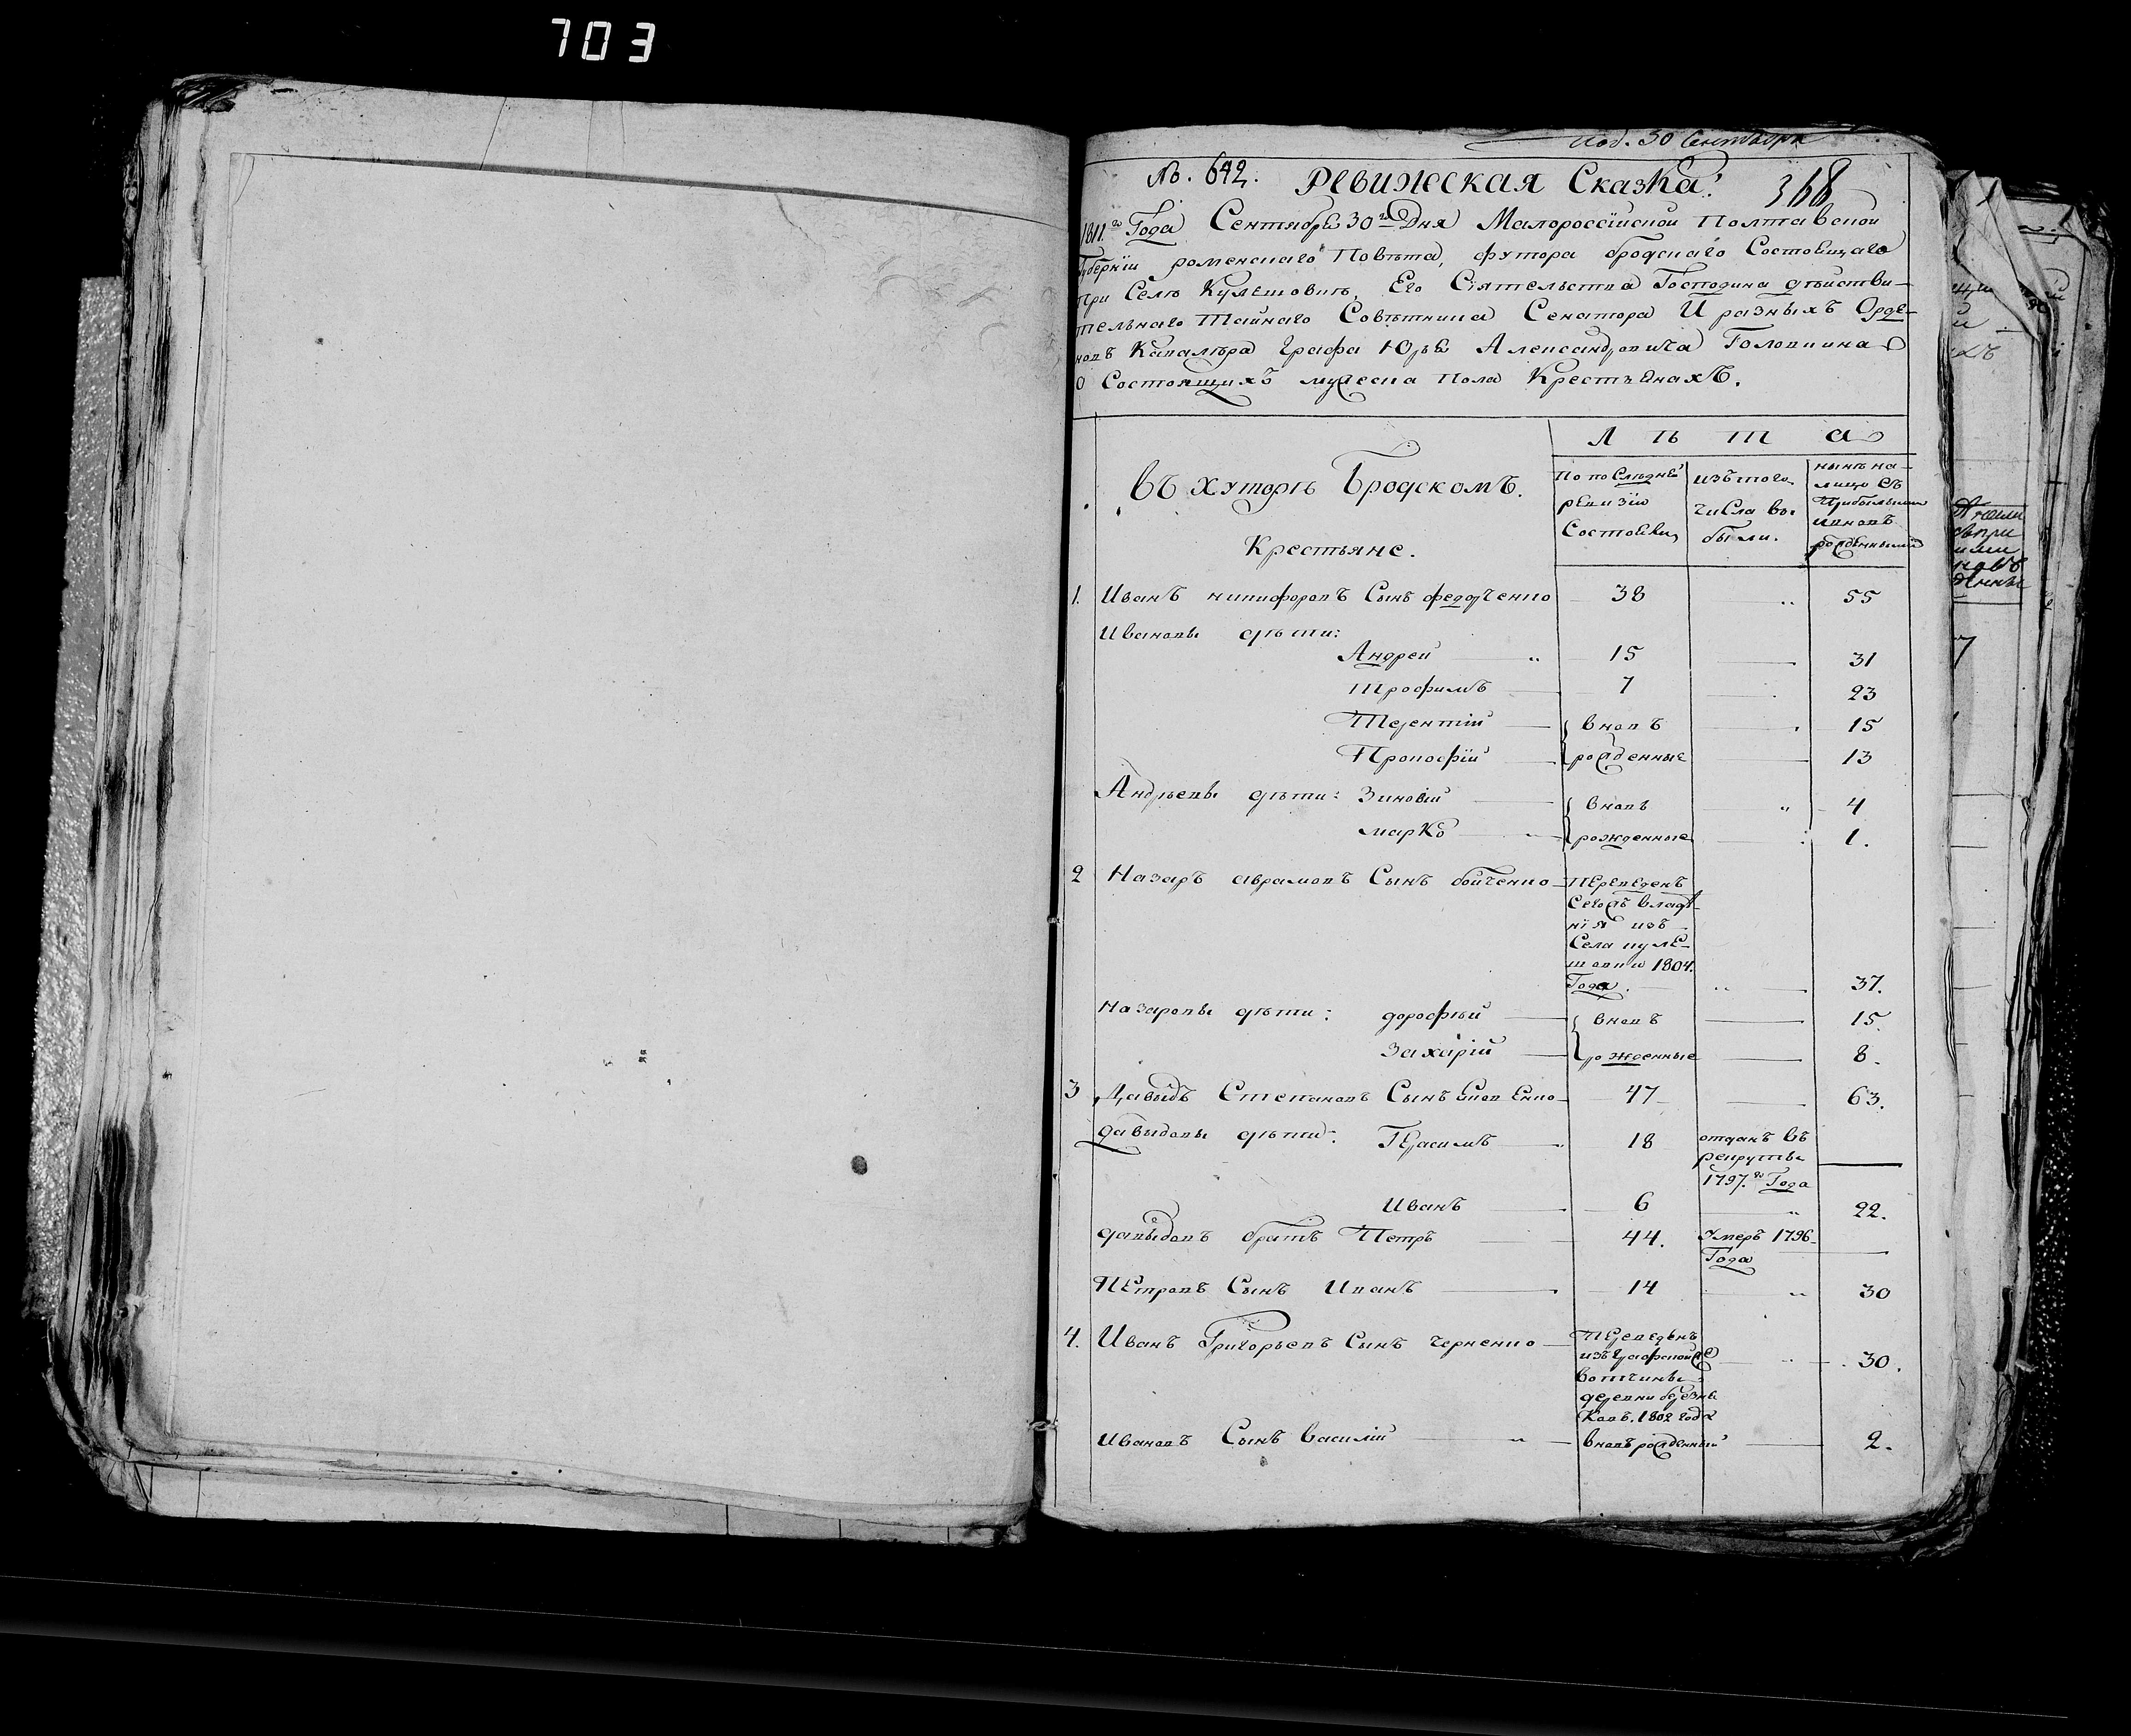 703
под. 30 Сентября
№. 642. Ревижская Сказка: 368
1811.го Года Сентября 30го Дня Малороссійской Полтавской
Губерніи роменскаго Повѣта, футора бродскаго Состоящаго
при Селѣ Кулешовкѣ, Его Сіятельства Господина дѣйстви-
тельнаго Тайнаго Совѣтника Сенатора И разныхъ Орде-
новъ Кавалѣра Графа Юрья Александровича Головкина
О Состоящихъ мужеска Пола Крестьянахъ.
Л ѣ т а
въ хуторѣ Бродскомъ.
Крестьяне.
По последней
ревизіи
Состоявъ
изъ того
числа вы
были.
нынѣ на-
лицо съ
Прибылыми
и вновь
рожденными
1. Иванъ никифоровъ Сынъ федорченко 38 55
Ивановы дѣти:
Андрей 15 31
Трофимъ 7 23
Терентій вновь 15
Прокофій рожденные 13
Андреевы дѣти: Зиновій вновь 4
марко рожденные 1.
2 Назаръ аврамовъ Сынъ бойченко Переведенъ
Сегожъ владѣ-
нія изъ
Села куле-
шовки 1804.
Года. 37.
Назаровы дѣти: дорофѣй вновь 15.
Захарій рожденные 8.
3 Давыдъ Степановъ Сынъ 47 63.
давыдовы дѣти: Герасимъ 18 отданъ въ
рекруты
1797.го Года
Иванъ 6 22.
давыдовъ братъ Петръ 44. Умеръ 1796
Года
Петровъ Сынъ Иванъ 14 30
4. Иванъ Григорьевъ Сынъ черненко Переведенъ
изъ Графской же 30.
вотчины
деревни березня
ковъ. 1802 года
Ивановъ Сынъ василій вновь рожденный 2.